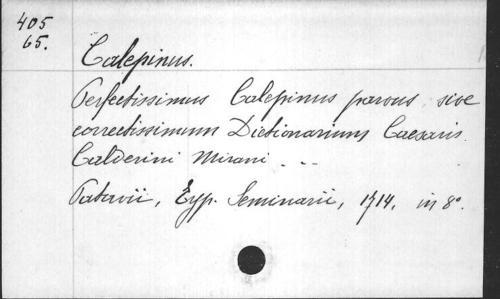 405
65.
Calepinus.
Perfectissimus Calepinus parvus sive
correctissimum Dictionarium Caesaris
Calderini Mirani . . .
Patavii, Typ. Seminarii, 1714. in 8°.